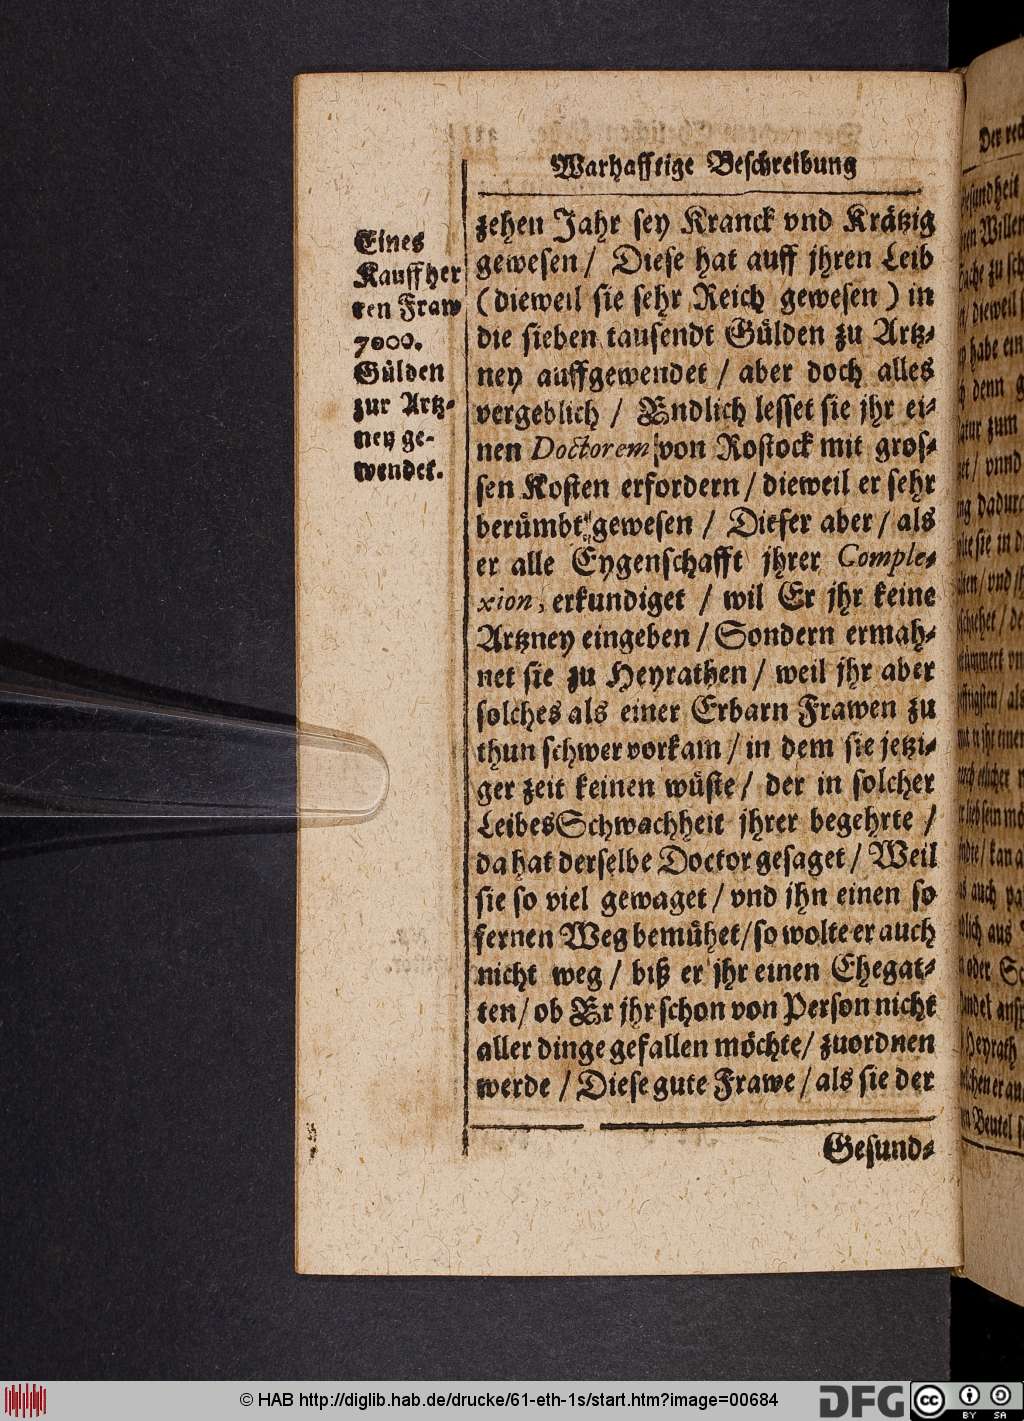 Warhafftige Beschreibung
Eines
Kauffher
ren Fraw
7000.
Gülden
zur Artz-
ney ge-
wendet.
zehen Jahr sey Kranck vnd Krätzig
gewesen / Diese hat auff jhren Leib
(dieweil sie sehr Reich gewesen) in
die sieben tausendt Gülden zu Artz-
ney auffgewendet / aber doch alles
vergeblich / Endlich lesset sie jhr ei-
nen Doctorem von Rostock mit gros-
sen Kosten erfordern / dieweil er sehr
berümbt gewesen / Dieser aber / als
er alle Eygenschafft jhrer Comple-
xion, erkundiget / wil Er jhr keine
Artzney eingeben / Sondern ermah-
net sie zu Heyrathen / weil jhr aber
solches als einer Erbarn Frawen zu
thun schwer vorkam / in dem sie jetzi-
ger zeit keinen wüste / der in solcher
Leibes Schwachheit jhrer begehrte /
da hat derselbe Doctor gesaget / Weil
sie so viel gewaget / vnd jhn einen so
fernen Weg bemühet / so wolte er auch
nicht weg / biß er jhr einen Ehegat-
ten / ob Er jhr schon von Person nicht
aller dinge gefallen möchte / zuordnen
werde / Diese gute Frawe / als sie der
Gesund-
© HAB http://diglib.hab.de/drucke/61-eth-1s/start.htm?image=00684
DFG
cc
BY SA